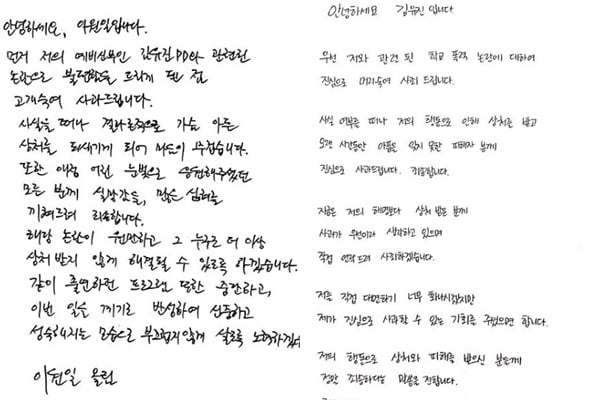 안녕하세요, 이원일입니다.
먼저 저의 예비신부인 김유진PD와 관련된
논란으로 불편함을 드리게 된 점
고개숙여 사과드립니다.
사실을 떠나 결과론적으로 가슴 아픈
상처를 되새기게 되어 마음이 무겁습니다.
또한 애정 어린 눈빛으로 응원해주셨던
모든 분께 실망감을, 많은 심려를
끼쳐드려 죄송합니다.
해당 논란이 원만하고 그 누구도 더 이상
상처 받지 않게 해결될 수 있도록 하겠습니다.
같이 출연하던 프로그램 또한 중단하고,
이번 일을 계기로 반성하여 신중하고
성숙해지는 모습으로 부끄럽지않게 살도록 노력하겠
이원일 올림
안녕하세요 김유진 입니다
우선 저와 관련 된 학교 폭력 논란에 대하여
진심으로 머리숙여 사죄 드립니다.
사실 여부를 떠나 저의 행동으로 인해 상처를 받고
오랜 시간동안 아픔을 잊지 못한 피해자 분께
진심으로 사과드립니다. 죄송합니다.
지금은 저의 해명보다 상처 받은 분께
사과가 우선이라 생각하고 있으며
직접 연락드려 사죄하겠습니다.
저를 직접 대면하기 너무 화나시겠지만
제가 진심으로 사과할 수 있는 기회를 주셨으면 합니다.
저의 행동으로 상처와 피해를 받으신 분들께
정말 죄송하다는 말씀을 전합니다.